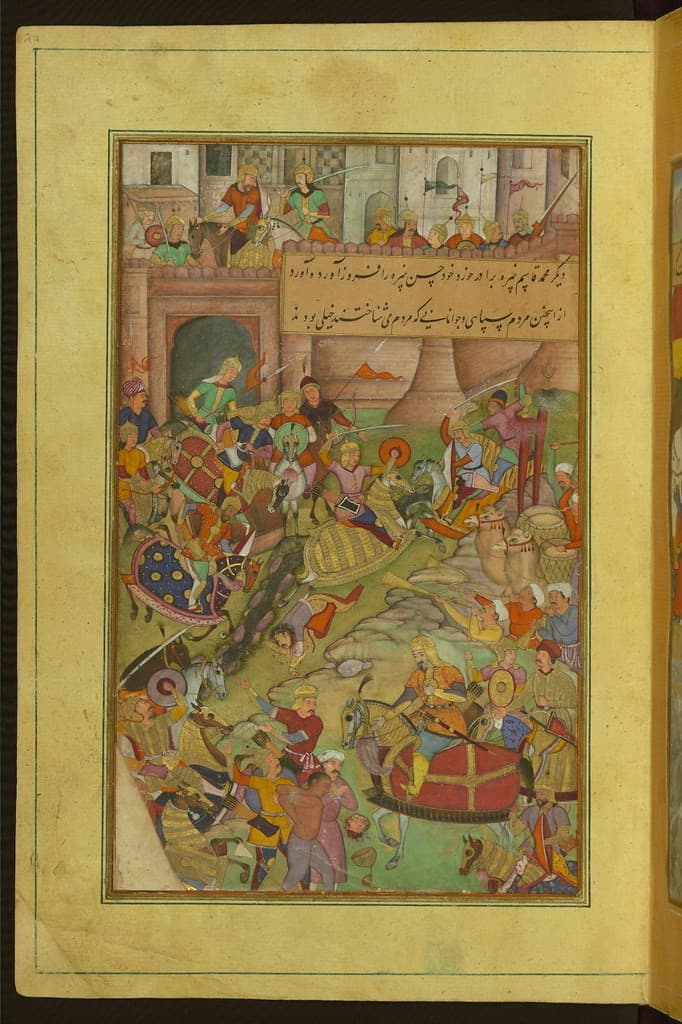 دیکر محمد قاسم نبیره برادر خورد خود حسن نبیره را فرود آورده آورد
از اینچنین مردم سپاهی و جوانانی که مردم می شناختند خیلی بودند